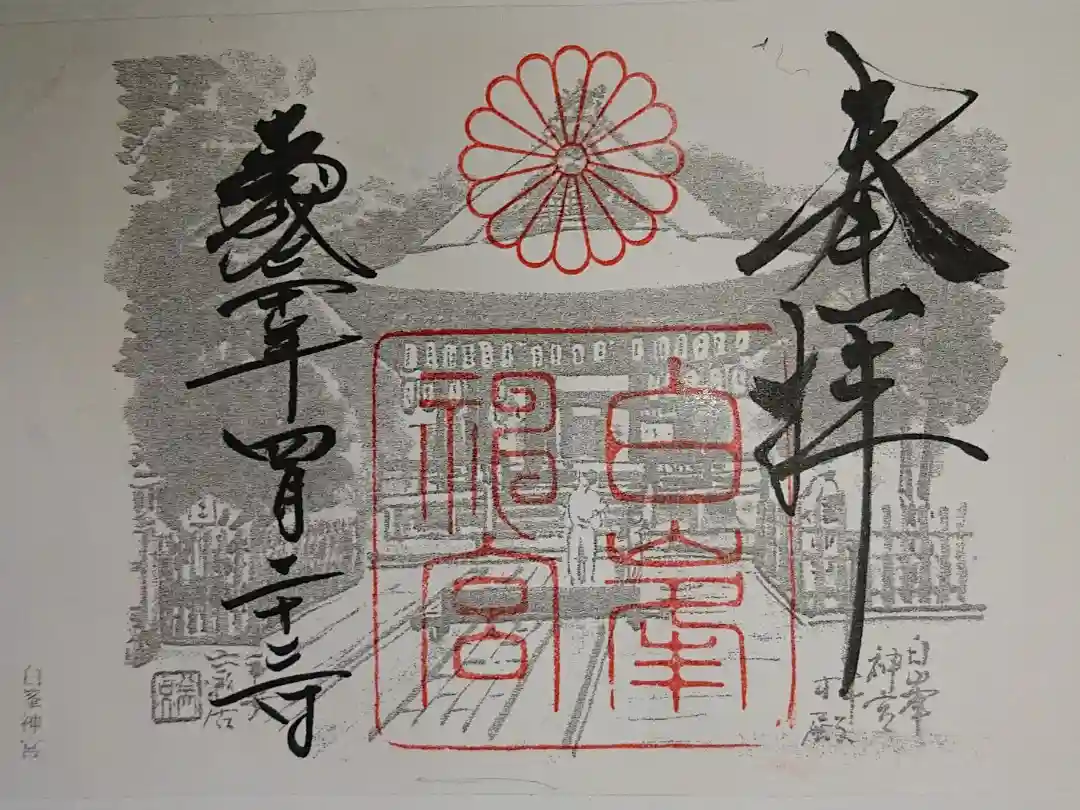 奉拝
白峯
神宮
年四月二十三日
白峯
神宮
拝殿
白峯神宮